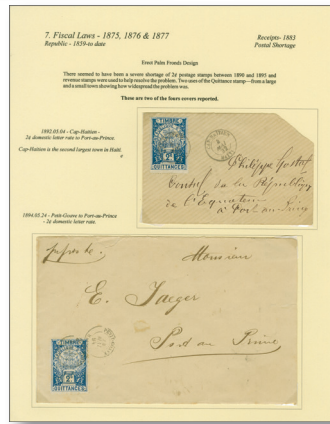 7. Fiscal Laws - 1875, 1876 & 1877
Receipts- 1883
Republic - 1859-to date
Postal Shortage
Erect Palm Fronds Design
There seemed to have been a severe shortage of 2¢ postage stamps between 1890 and 1895 and
revenue stamps were used to help resolve the problem. Two uses of the Quittance stamp—from a large
and a small town showing how widespread the problem was.
These are two of the fours covers reported.
1892.05.04 - Cap-Haitien -
2¢ domestic letter rate to Port-au-Prince.
Cap-Haitien is the second largest town in Haiti.
TIMBRE
QUITTANCES
Philippe
Consul de la République
de l'Equateur
à Port au Prince
1894.03.24 - Petit-Goave to Port-au-Prince
- 2¢ domestic letter rate.
Monsieur
E. Jaeger
Port au Prince
TIMBRE
QUITTANCES